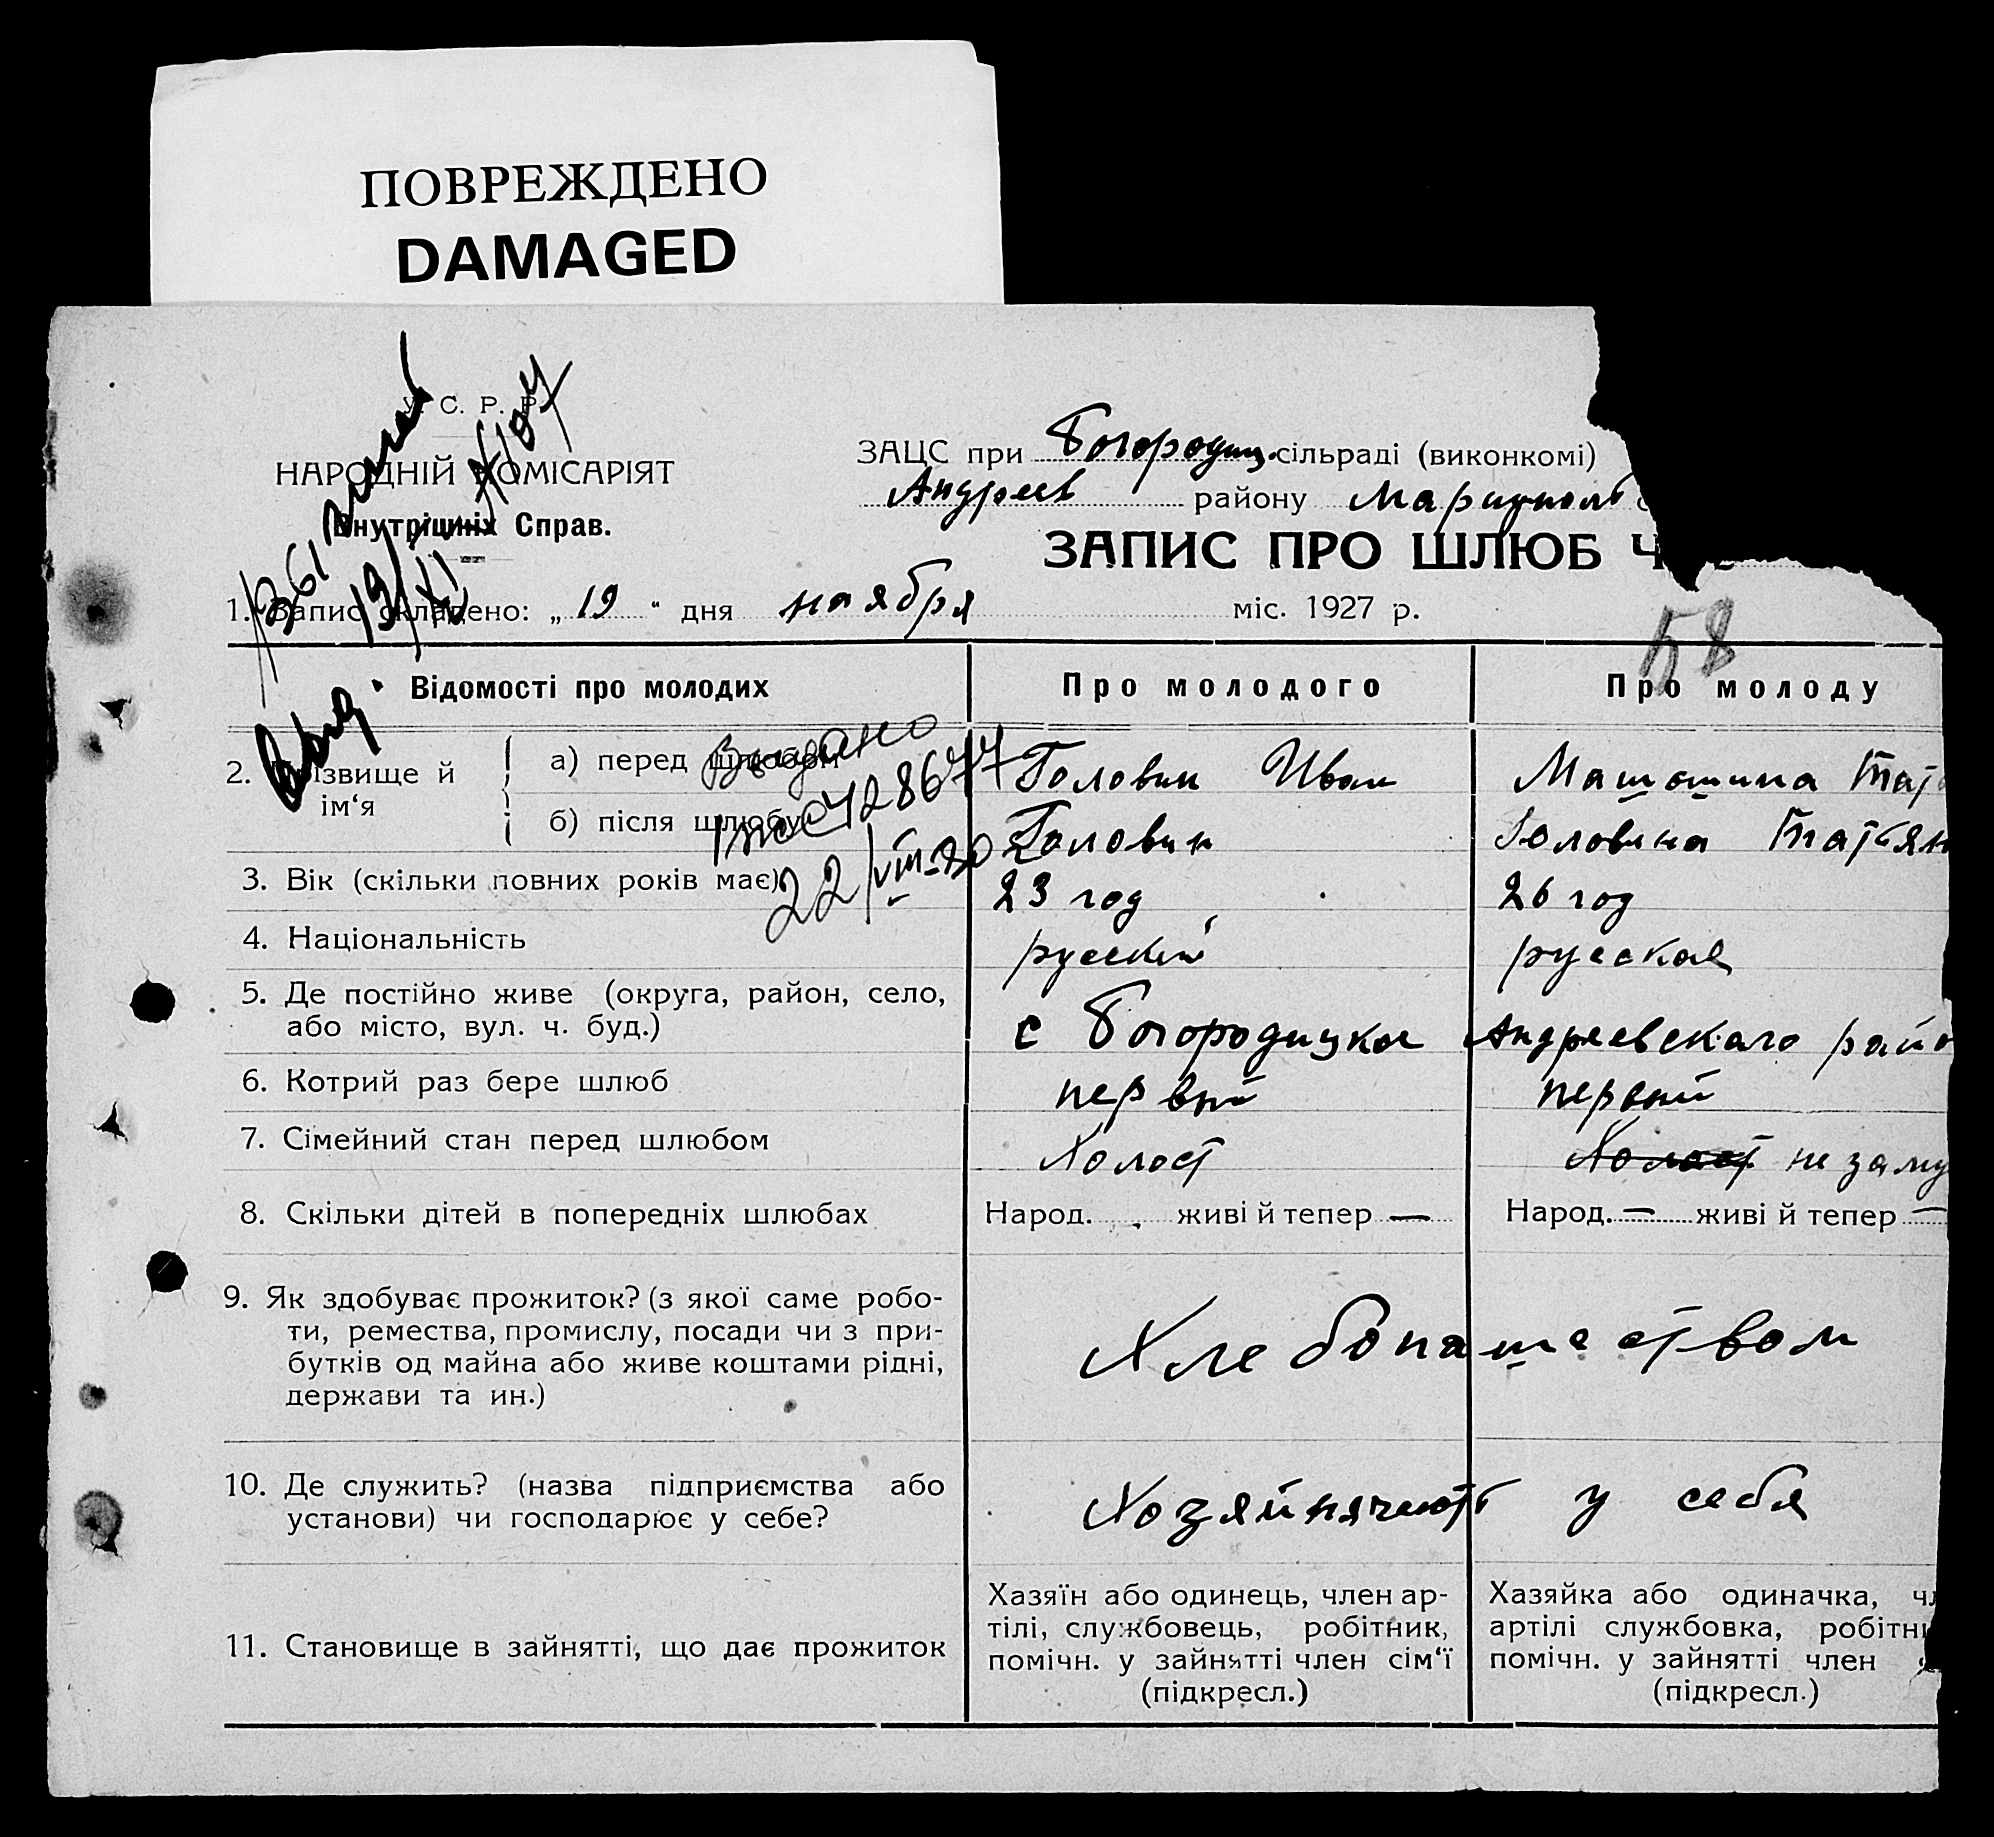 ПОВРЕЖДЕНО
DAMAGED
У. С. Р. Р.
НАРОДНІЙ КОМІСАРІЯТ
Внутрішніх Справ.
ЗАЦС при Богородиц. сільраді (виконкомі)
Андреев району Мариуполь
ЗАПИС ПРО ШЛЮБ Ч
58
1. Запис складено: „ 19 " дня ноября міс. 1927 р.
Відомості про молодих Про молодого Про молоду
Выдано
22/VIII-30
2. Прізвище й ім‘я
а) перед шлюбом Головин Иван Машошина Тат
б) після шлюбу Головин Головина Татьян
3. Вік (скільки повних років має) 23 год 26 год
4. Національність русский русская
5. Де постійно живе (округа, район, село,
або місто, вул. ч. буд.) с Богородицкое Андреевскаго райо
6. Котрий раз бере шлюб первый первый
7. Сімейний стан перед шлюбом Холост Холост не заму
8. Скільки дітей в попередніх шлюбах Народ. живі й тепер — Народ. — живі й тепер —
9. Як здобуває прожиток? (з якої саме робо-
ти, ремества, промислу, посади чи з при-
бутків од майна або живе коштами рідні,
держави та ин.)
Хлебопашеством
10. Де служить? (назва підприємства або
установи) чи господарює у себе?
Хозяйнячеють у себя
11. Становище в зайнятті, що дає прожиток
Хазяїн або одинець, член ар-
тілі, службовець, робітник,
помічн. у зайнятті член сім‘ї
(підкресл.)
Хазяйка або одиначка, чл
артілі службовка, робітни
помічн. у зайнятті член
(підкресл.)